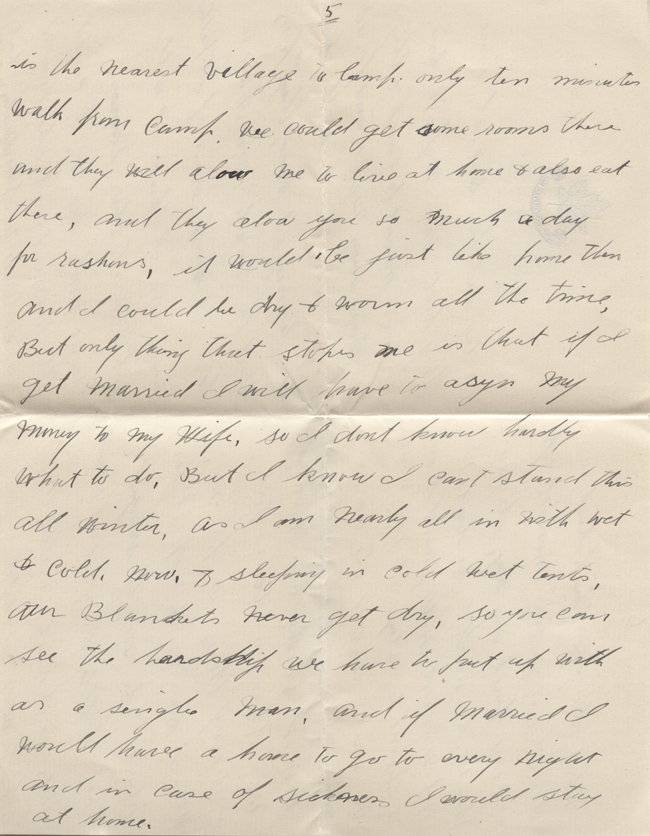 5
is the nearest Village to Camp. only ten minutes
walk from Camp, we could get some rooms there
and they will alow me to live at home & also eat
there, and they alow you so much a day
for rashons, it would be just like home then
and I could be dry & worm all the time,
But only thing that stopes me is that if I
get Married I will have to asyn My
Money to my Wife, so I dont know hardly
what to do, But I know I cant stand this
all winter, as I am nearly all in with wet
& cold. now. & sleeping in cold wet tents,
our Blankets never get dry, so you can
see the hardship we have to put up with
as a single Man, and if Married I
would have a home to go to every night
and in case of sickness I would stay
at home.